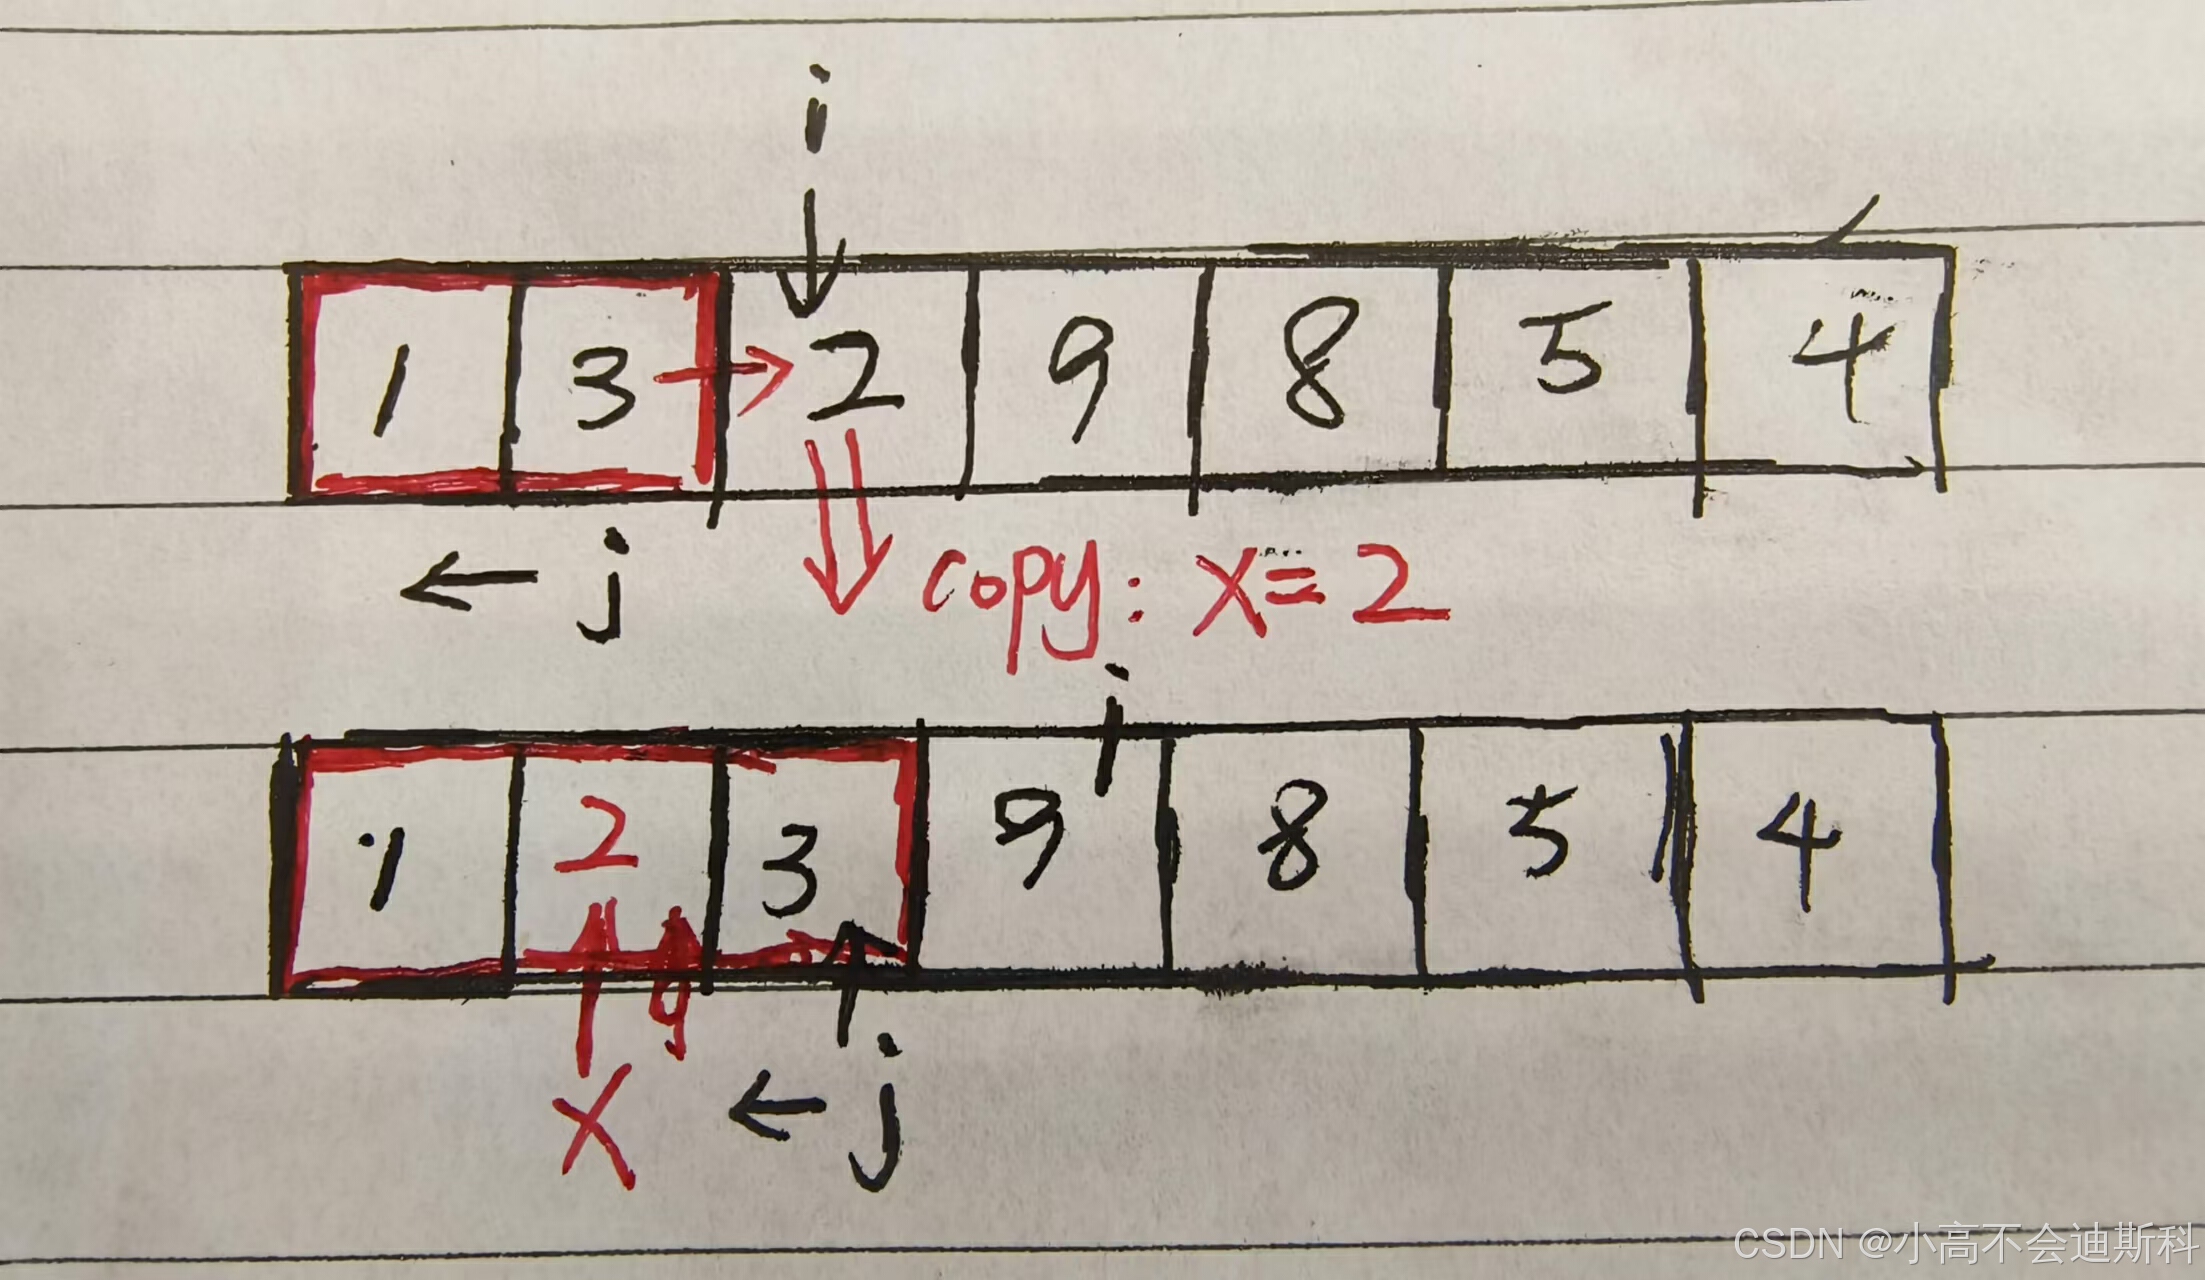 i
1 3 → 2 9 8 5 4
← j copy: x=2
i
1 2 3 9 8 5 4
x ← j
CSDN @小高不会迪斯科